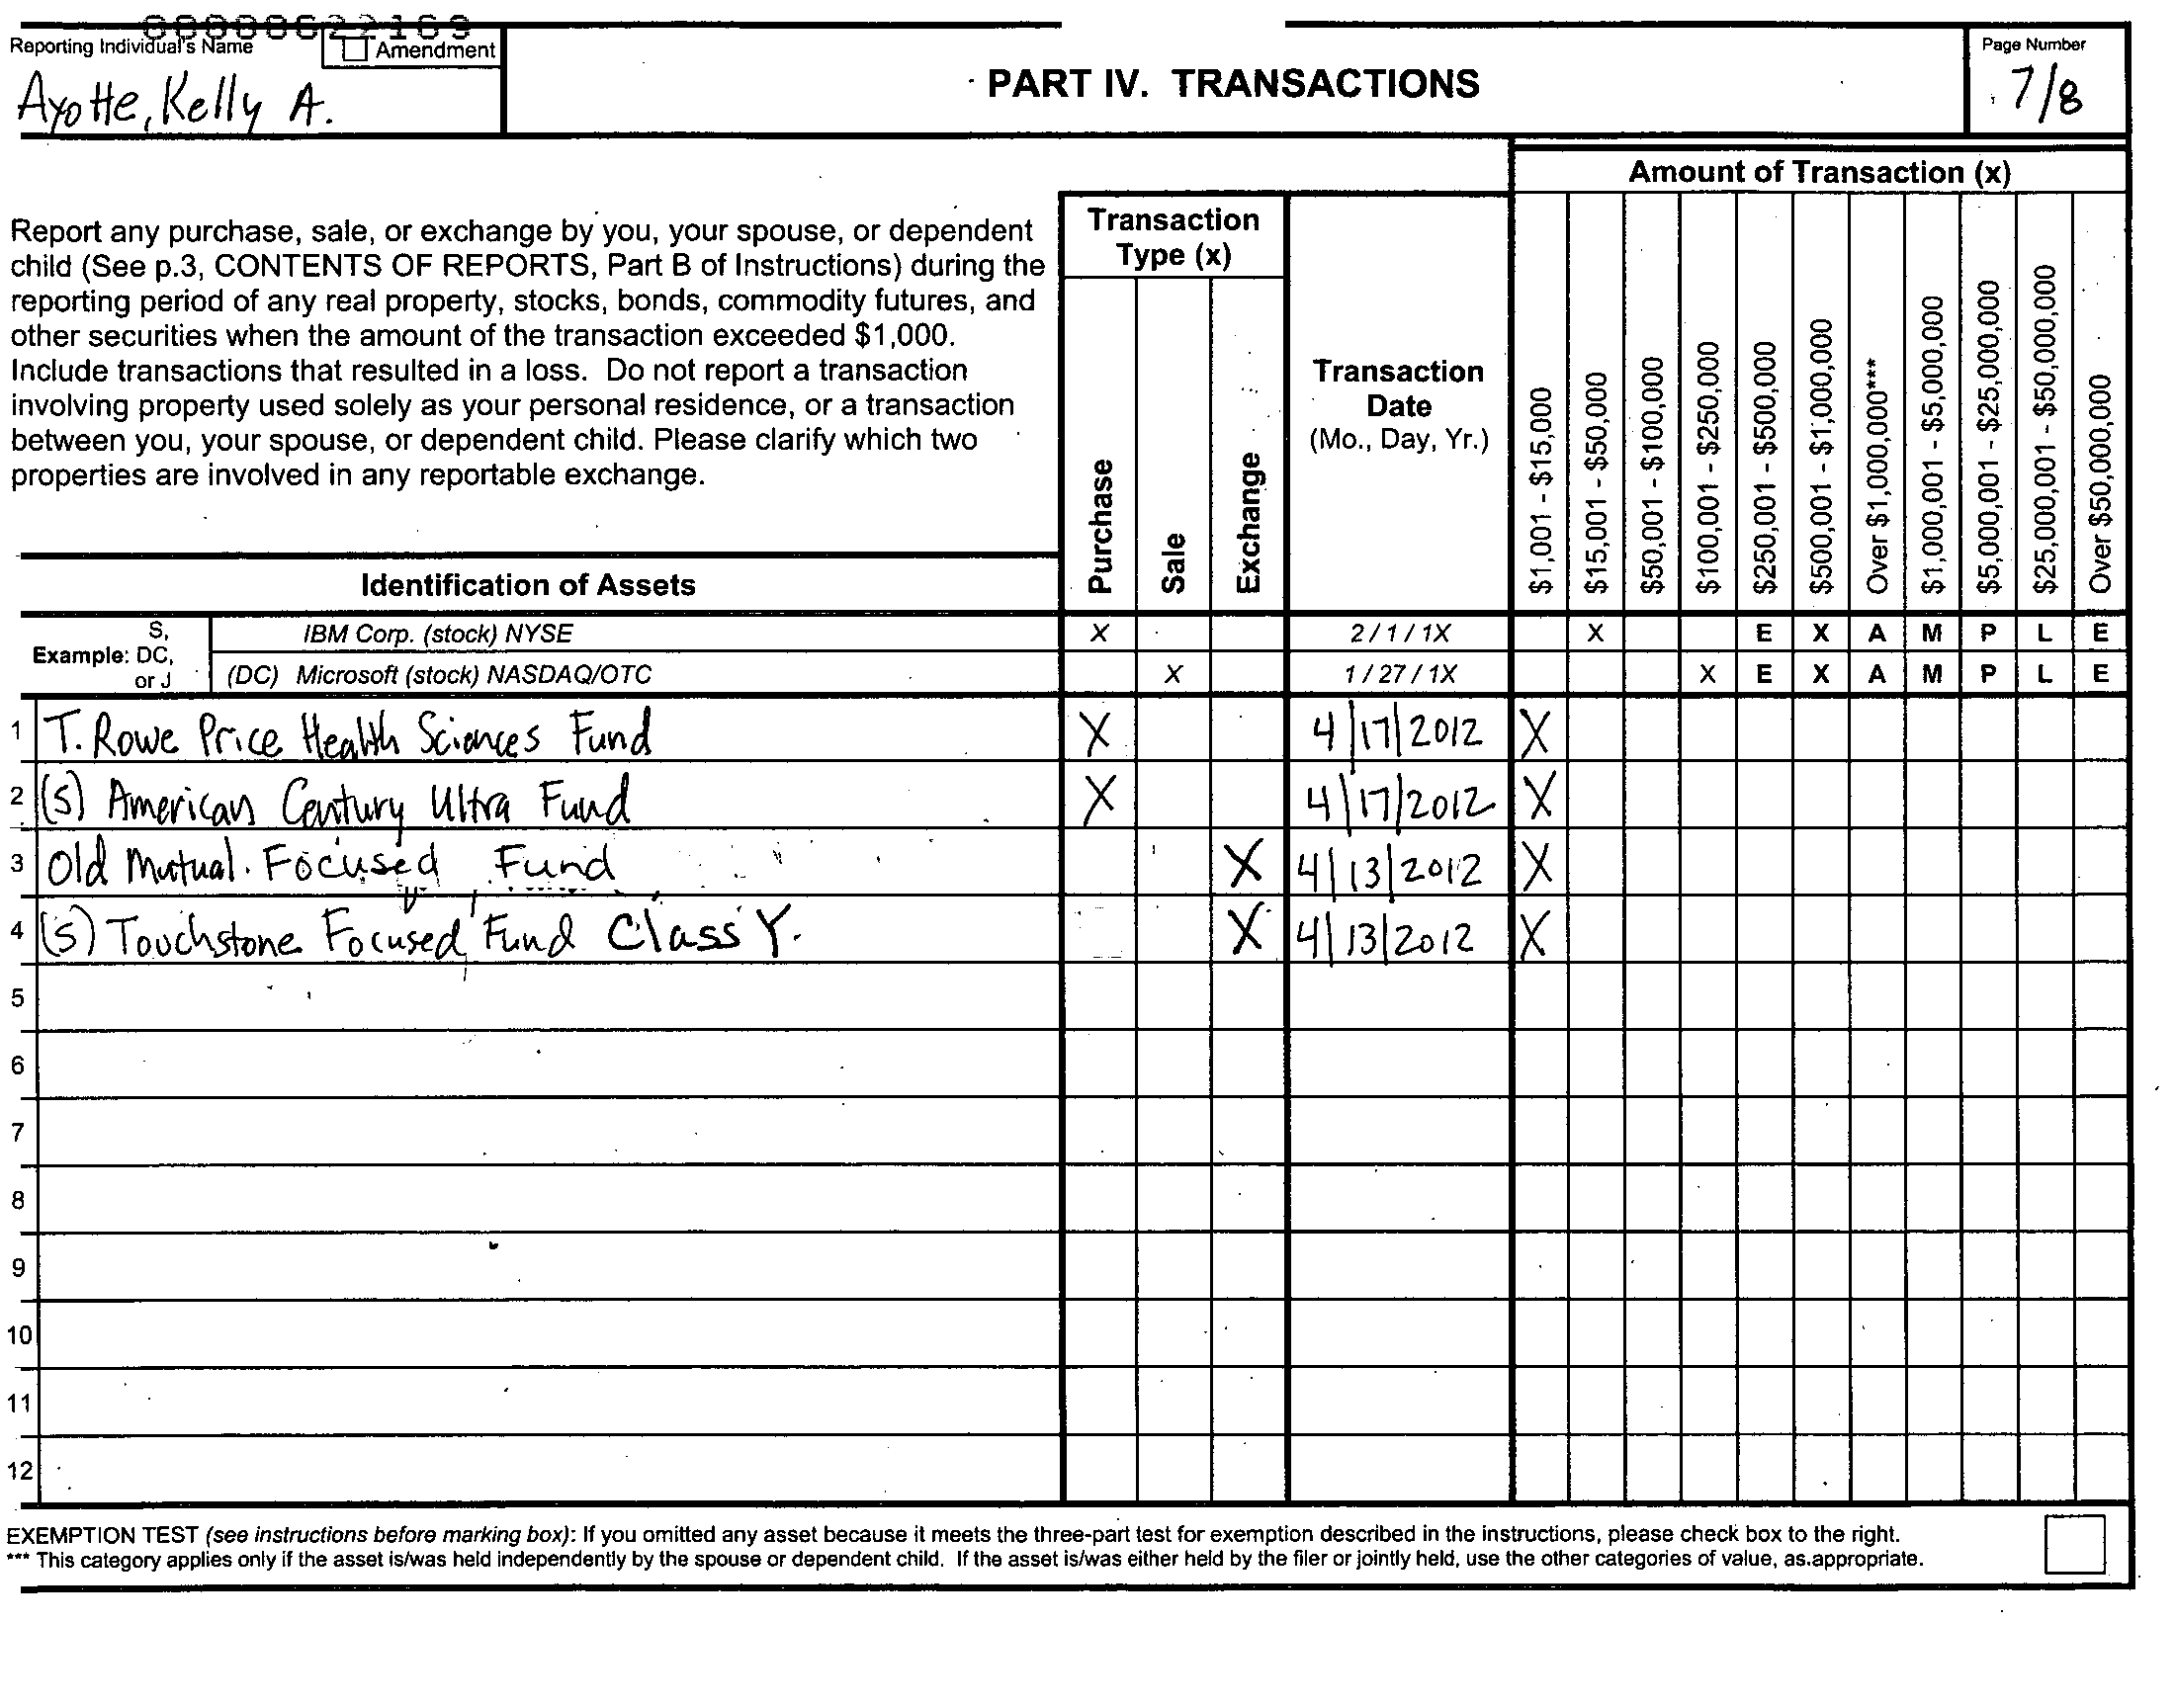 Reporting Individual's Name
Amendment
Ayotte, Kelly A.
PART IV. TRANSACTIONS
Page Number
7/8
Amount of Transaction (x)
Report any purchase, sale, or exchange by you, your spouse, or dependent
child (See p.3, CONTENTS OF REPORTS, Part B of Instructions) during the
reporting period of any real property, stocks, bonds, commodity futures, and
other securities when the amount of the transaction exceeded $1,000.
Include transactions that resulted in a loss. Do not report a transaction
involving property used solely as your personal residence, or a transaction
between you, your spouse, or dependent child. Please clarify which two
properties are involved in any reportable exchange.
Transaction
Type (x)
Purchase
Sale
Exchange
Transaction
Date
(Mo., Day, Yr.)
$1,001 - $15,000
$15,001 - $50,000
$50,001 - $100,000
$100,001 - $250,000
$250,001 - $500,000
$500,001 - $1,000,000
Over $1,000,000***
$1,000,001 - $5,000,000
$5,000,001 - $25,000,000
$25,000,001 - $50,000,000
Over $50,000,000
Identification of Assets
Example: S, DC, or J
IBM Corp. (stock) NYSE X 2 / 1 / 1X X E X A M P L E
(DC) Microsoft (stock) NASDAQ/OTC X 1 / 27 / 1X X E X A M P L E
1 T. Rowe Price Health Sciences Fund X 4/17/2012 X
2 (S) American Century Ultra Fund X 4/17/2012 X
3 Old Mutual Focused Fund X 4/13/2012 X
4 (S) Touchstone Focused Fund Class Y. X 4/13/2012 X
5
6
7
8
9
10
11
12
EXEMPTION TEST (see instructions before marking box): If you omitted any asset because it meets the three-part test for exemption described in the instructions, please check box to the right.
*** This category applies only if the asset is/was held independently by the spouse or dependent child. If the asset is/was either held by the filer or jointly held, use the other categories of value, as appropriate.